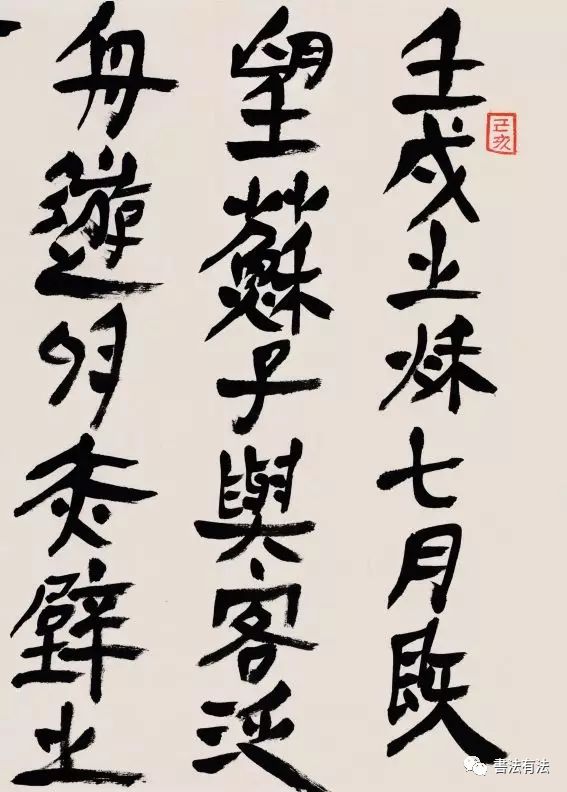 壬戌之秌七月既
望蘇子與客泛
舟遊於赤壁之
己亥
書法有法